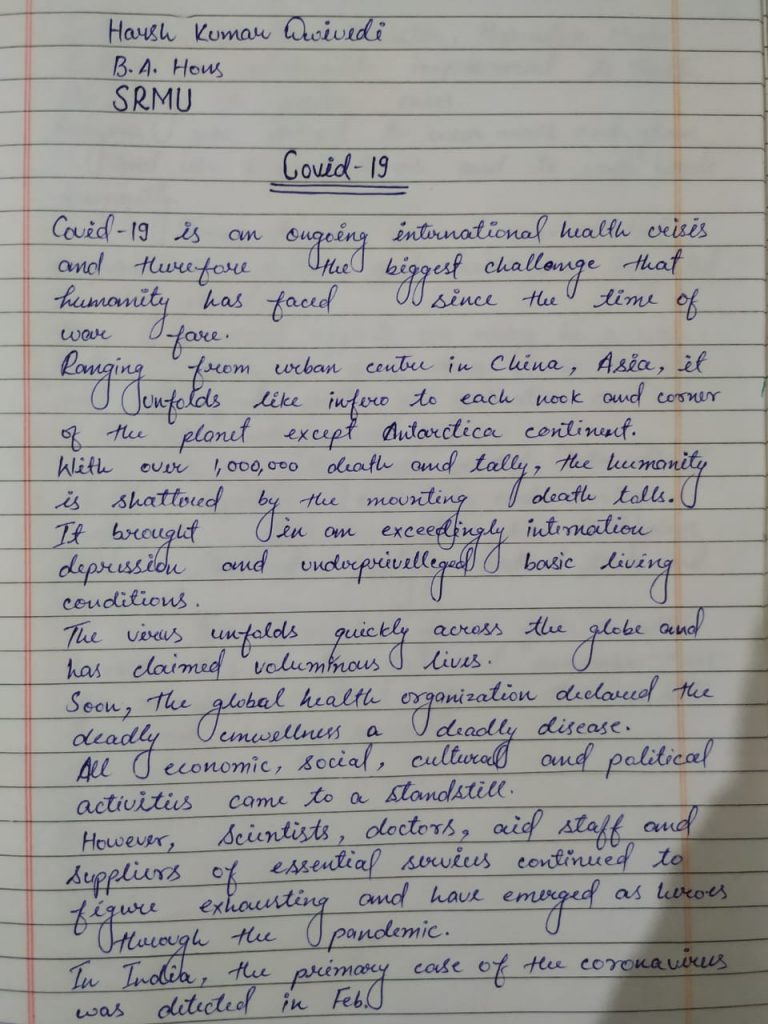 Harsh Kumar Dwivedi
B.A. Hons
SRMU
Covid-19
Covid-19 is an ongoing international health crisis
and therefore the biggest challenge that
humanity has faced since the time of
war fare.
Ranging from urban centre in China, Asia, it
unfolds like infero to each nook and corner
of the planet except Antarctica continent.
With over 1,000,000 death and tally, the humanity
is shattored by the mounting death tolls.
It brought in an exceedingly internation
depression and underprivelleged basic living
conditions.
The virus unfolds quickly across the globe and
has claimed voluminous lives.
Soon, the global health organization declared the
deadly unwellness a deadly disease.
All economic, social, cultural and political
activities came to a standstill.
However, scientists, doctors, aid staff and
suppliers of essential services continued to
figure exhausting and have emerged as heroes
through the pandemic.
In India, the primary case of the coronavirus
was detected in Feb.